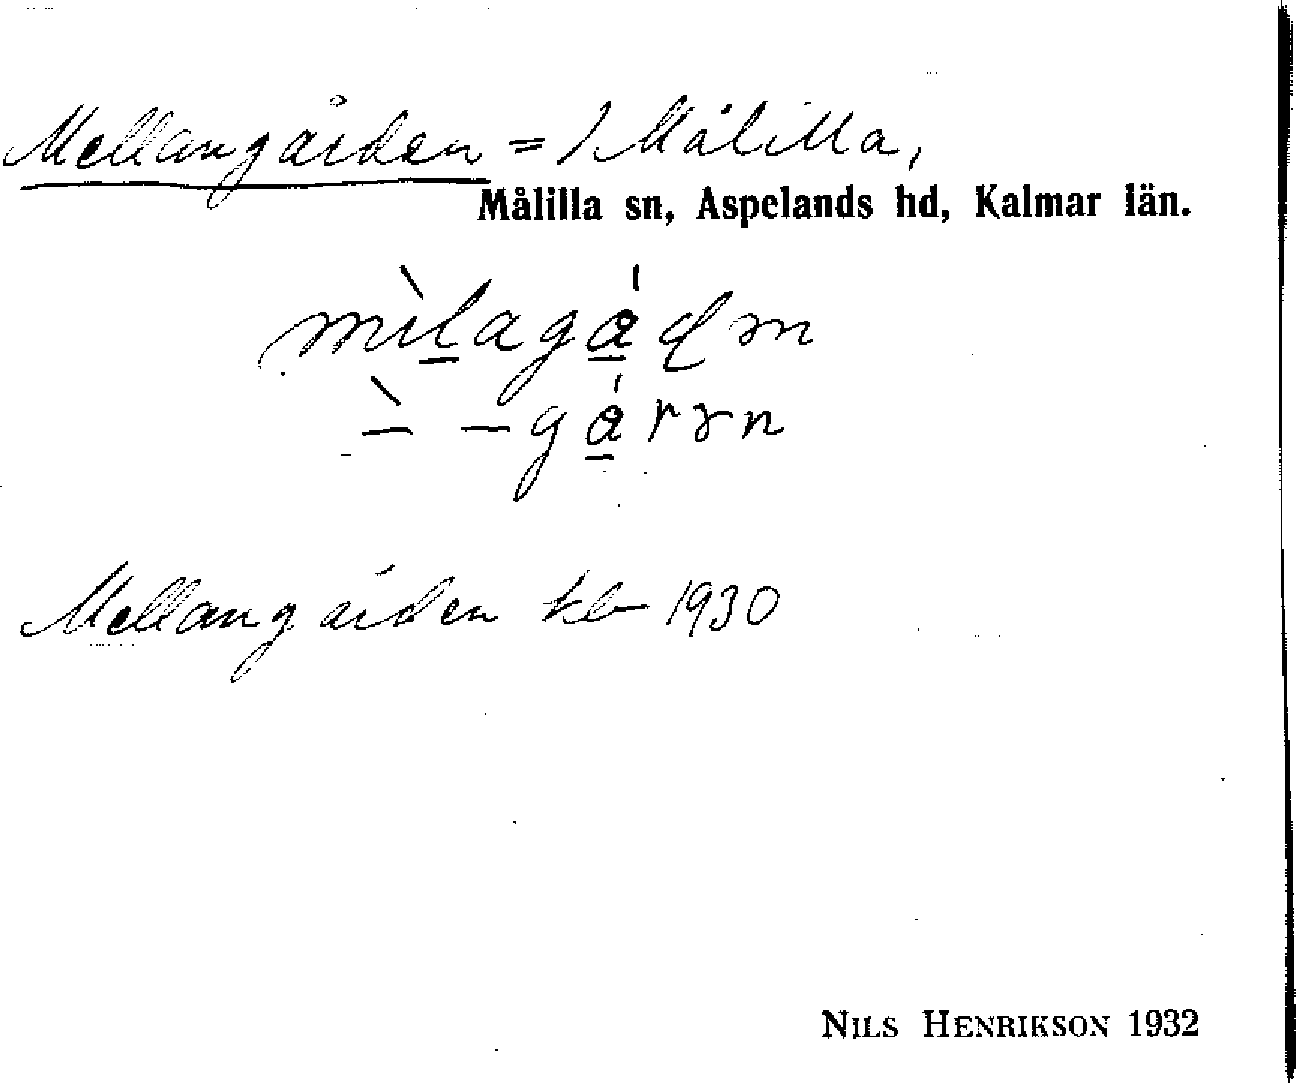 Mellangården = 1 Målilla,
Målilla sn, Aspelands hd, Kalmar län.
mìlagǻɖən
_̀ _gǻrən
Mellangården kb 1930
NILS HENRIKSON 1932